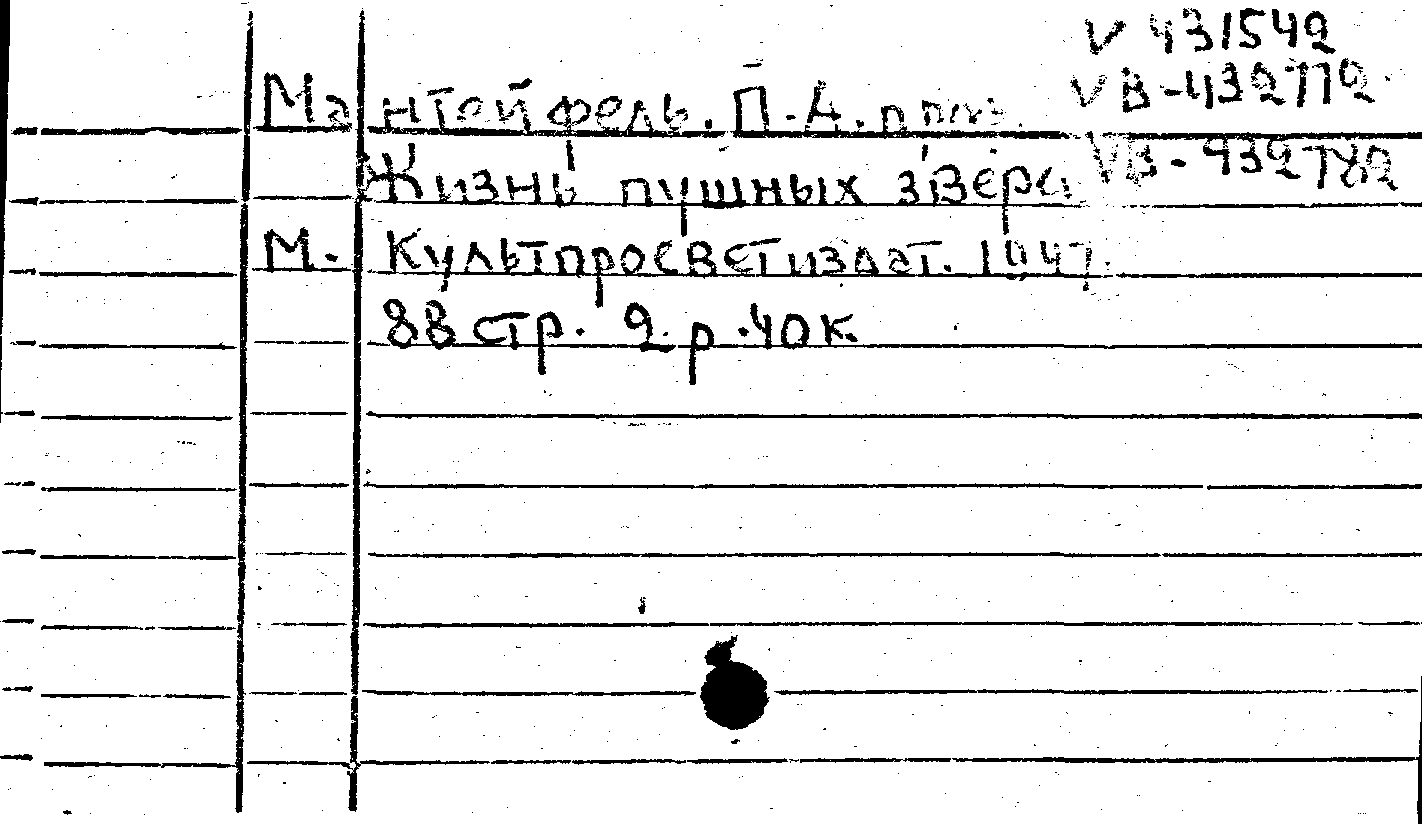 V 431542
VB-432772
VB-932782
Мантейфель. П.А. проф.
Жизнь пушных звере
М. Культпросветиздат. 1947.
88 стр. 2 р. 40 к.